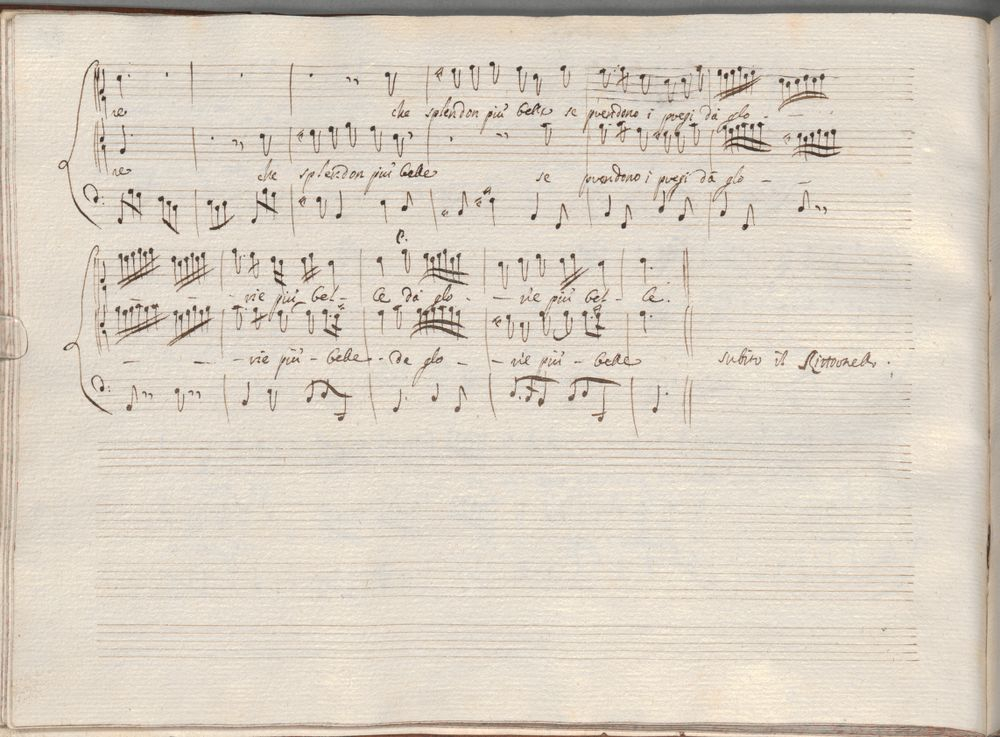 re che splendon più belle se prendono i pregi da glo -
re che splendon più belle se prendono i pregi da glo - -
- rie più bel - le da glo - - rie più bel - le.
- - - rie più - belle - da glo - - rie più - belle subito il Rittornello.